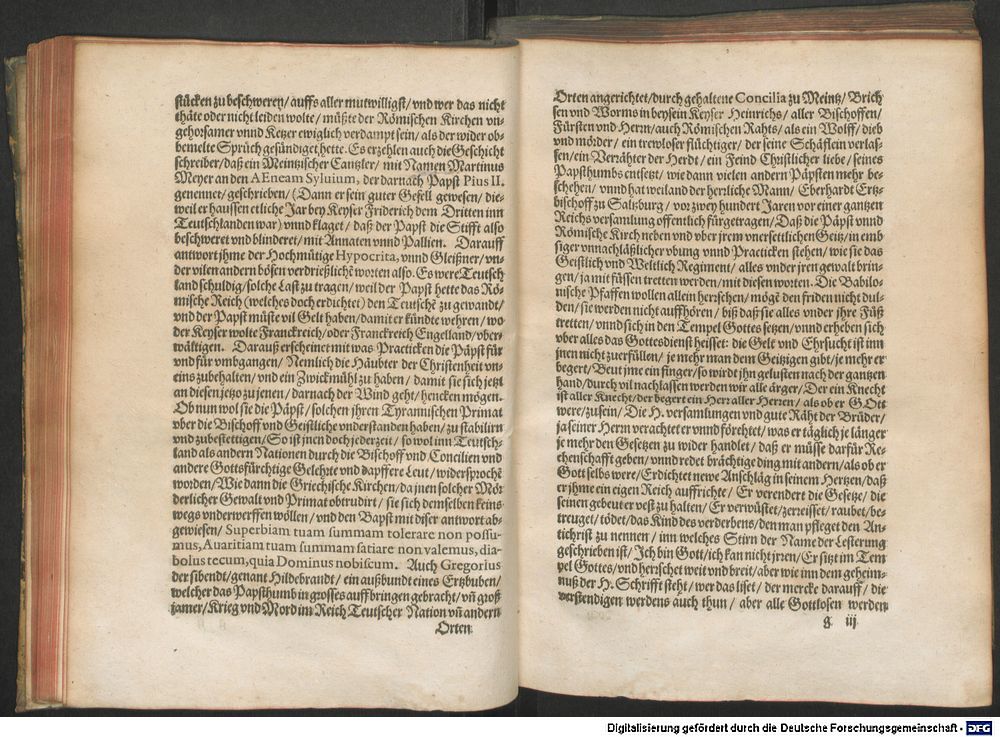 stücken zu beschweren/ auffs aller mutwilligst/ vnd wer das nicht
thäte oder nicht leiden wolte/ müßte der Römischen Kirchen vn-
gehorsamer vnnd Ketzer ewiglich verdampt sein/ als der wider ob-
bemelte Sprüch gesündiget hette. Es erzehlen auch die Geschicht
schreiber/ daß ein Meintzischer Cantzler/ mit Namen Martinus
Meyer an den AEneam Syluium, der darnach Papst Pius II.
genennet/ geschrieben/ (Dann er sein guter Gesell gewesen/ die-
weil er haussen etliche Jar bey Keyser Friderich dem Dritten inn
Teutschlanden war) vnnd klaget/ daß der Papst die Stifft also
beschweret vnd blinderet/ mit Annaten vnnd Pallien. Darauff
antwort jhme der Hochmütige Hypocrita, vnnd Gleißner/ vn-
der vilen andern bösen verdrießlichē worten also. Es were Teutsch
land schuldig/ solche Last zu tragen/ weil der Papst hette das Rö-
mische Reich (welches doch erdichtet) den Teutschē zu gewandt/
vnd der Papst müste vil Gelt haben/ damit er kündte wehren/ wo
der Keyser wolte Franckreich/ oder Franckreich Engelland/ vber-
wältigen. Darauß erscheinet mit was Practicken die Päpst für
vnd für vmbgangen/ Nemlich die Häubter der Christenheit vn-
eins zubehalten/ vnd ein Zwickmühl zu haben/ damit sie sich jetzt
an diesen jetzo zu jenen/ darnach der Wind geht/ hencken mögen.
Ob nun wol sie die Päpst/ solchen jhren Tyrannischen Primat
vber die Bischoff vnd Geistliche vnderstanden haben/ zu stabilirn
vnd zubestettigen/ So ist jnen doch jederzeit/ so wol inn Teutsch-
land als andern Nationen durch die Bischoff vnd Concilien vnd
andere Gottsfürchtige Gelehrte vnd dapffere Leut/ widersprochē
worden/ Wie dann die Griechische Kirchen/ da jnen solcher Mör
derlicher Gewalt vnd Primat obtrudirt/ sie sich demselben keins
wegs vnderwerffen wöllen/ vnd den Bapst mit diser antwort ab-
gewiesen/ Superbiam tuam summam tolerare non possu-
mus, Auaritiam tuam summam satiare non valemus, dia-
bolus tecum, quia Dominus nobiscum. Auch Gregorius
der sibendt/ genant Hildebrandt/ ein außbundt eines Ertzbuben/
welcher das Papsthumb in grosses auffbringen gebracht/ vñ groß
jamer/ Krieg vnd Mord im Reich Teutscher Nation vñ andern
Orten
Orten angerichtet/ durch gehaltene Concilia zu Meintz/ Brich
sen vnd Worms in beysein Keyser Heinrichs/ aller Bischoffen/
Fürsten vnd Herrn/ auch Römischen Rahts/ als ein Wolff/ dieb
vnd mörder/ ein trewloser flüchtiger/ der seine Schäflein verlas-
sen/ ein Verzähter der Herdt/ ein Feind Christlicher liebe/ seines
Papsthumbs entsetzt/ wie dann vielen andern Päpsten mehr be-
schehen/ vnnd hat weiland der herrliche Mann/ Eberhardt Ertz-
bischoff zu Saltzburg/ vor zwey hundert Jaren vor einer gantzen
Reichs versamlung offentlich fürgetragen/ Daß die Päpst vnnd
Römische Kirch neben vnd vber jrem vnersettlichen Geitz/ in emb
siger vnnachläßlicher vbung vnnd Practicken stehen/ wie sie das
Geistlich vnd Weltlich Regiment/ alles vnder jren gewalt brin-
gen/ ja mit füssen tretten werden/ mit diesen worten. Die Babilo-
nische Pfaffen wollen allein herschen/ mögē den friden nicht dul-
den/ sie werden nicht auffhören/ biß daß sie alles vnder jhre Füß
tretten/ vnnd sich in den Tempel Gottes setzen/ vnnd erheben sich
vber alles das Gottesdienst heisset: die Gelt vnd Ehrsucht ist inn
jnen nicht zuerfüllen/ je mehr man dem Geitzigen gibt/ je mehr er
begert/ Beut jme ein finger/ so wirdt jhn gelusten nach der gantzen
hand/ durch vil nachlassen werden wir alle ärger/ Der ein Knecht
ist aller Knecht/ der begert ein Herr aller Herren/ als ob er GOtt
were/ zusein/ Die H. versamlungen vnd gute Räht der Brüder/
ja seiner Herrn verachtet er vnnd förchtet/ was er täglich je länger
je mehr den Gesetzen zu wider handlet/ daß er müsse darfür Re-
chenschafft geben/ vnnd redet brächtige ding mit andern/ als ob er
Gott selbs were/ Erdichtet newe Anschläg in seinem Hertzen/ daß
er jhme ein eigen Reich auffrichte/ Er verendert die Gesetze/ die
seinen gebeut er vest zu halten/ Er verwüstet/ zerreisset/ raubet/ be-
treuget/ tödet/ das Kind des verderbens/ den man pfleget den An-
tichrist zu nennen/ inn welches Stirn der Name der Lesterung
geschrieben ist/ Ich bin Gott/ ich kan nicht jrren/ Er sitzt im Tem
pel Gottes/ vnd herschet weit vnd breit/ aber wie inn dem geheim-
nuß der H. Schrifft steht/ wer das liset/ der mercke darauff/ die
verstendigen werdens auch thun/ aber alle Gottlosen werden
g iij
Digitalisierung gefördert durch die Deutsche Forschungsgemeinschaft - DFG